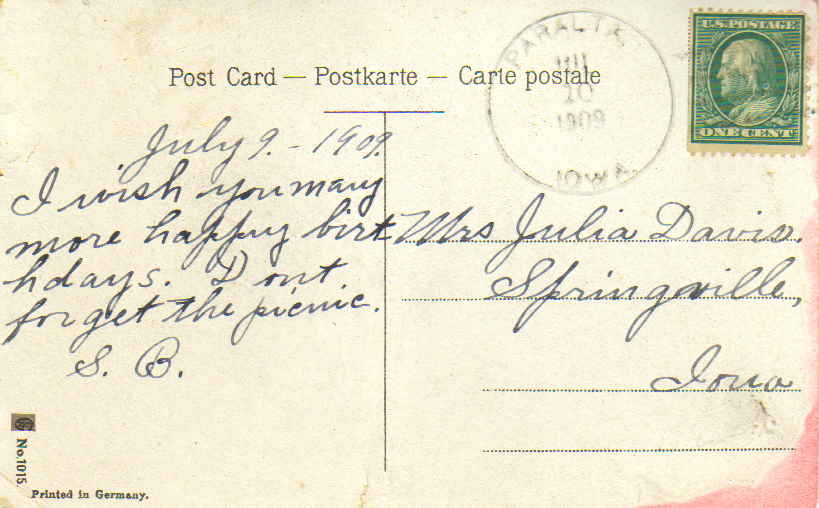 Post Card — Postkarte — Carte postale
PARALTA,
JUL
10
1909
IOWA
U.S. POSTAGE
ONE CENT
July 9. - 1909.
I wish you many
more happy birt
hdays. Dont
forget the picnic.
S. B.
Mrs Julia Davis.
Springville,
Iowa
No. 1015.
Printed in Germany.